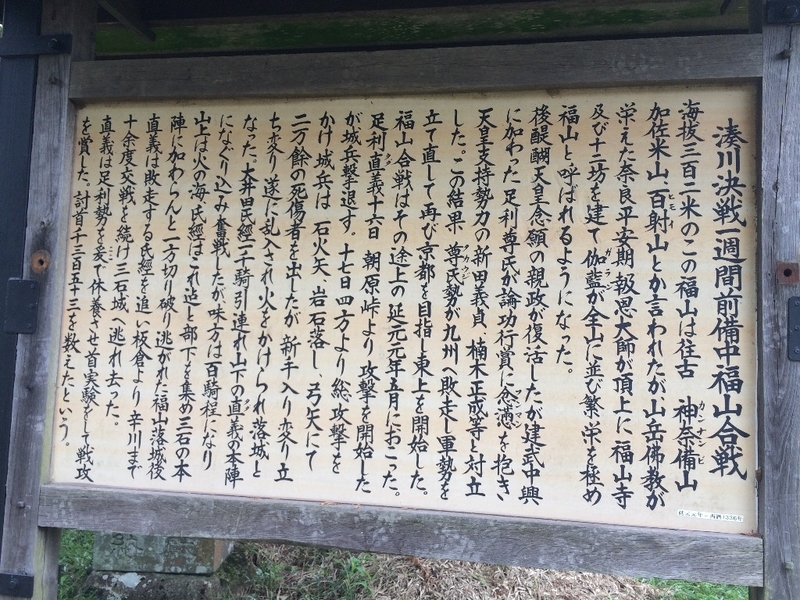 湊川決戦一週間前備中福山合戦
海抜三百二米のこの福山は往古 神奈備山
カンナビ
加佐米山 百射山とか言われたが、山岳佛教が
モモイ
栄えた奈良平安期 報恩大師が頂上に 福山寺
及び十二坊を建て 伽藍が全山に並び繁栄を極め
ガラン
福山と呼ばれるようになった。
後醍醐天皇念願の親政が復活したが建武中興
に加わった 足利尊氏が論功行賞に忿懣を抱き
天皇支持勢力の新田義貞、楠木正成等と対立
した。この結果 尊氏勢が九州へ敗走し軍勢を
タカウジ
立て直して再び京都を目指し東上を開始した。
福山合戦はその途上の延元元年五月におこった。
足利直義十六日 朝原峠より攻撃を開始した
が城兵撃退す。十七日四方より総攻撃を
かけ城兵は 石火矢、岩石落し、弓矢にて
二万餘の死傷者を出したが 新手入り変り立
ち変り遂に乱入され火をかけられ落城と
なった。大井田氏經一千騎引連れ山下の直義の本陣
になぐり込み奮戦したが味方は百騎程になり
山上は火の海、氏經はこれ迄と部下を集め三石の本
陣に加わらんと一方切り破り逃がれた福山落城後
直義は敗走する氏經を追い板倉より辛川まで
十余度交戦を続け三石城へ逃れ去った。
直義は足利勢を爰で休養させ首実験をして戦攻
を賞した。討首千三百五十三を数えたという。
延元元年=西暦1336年